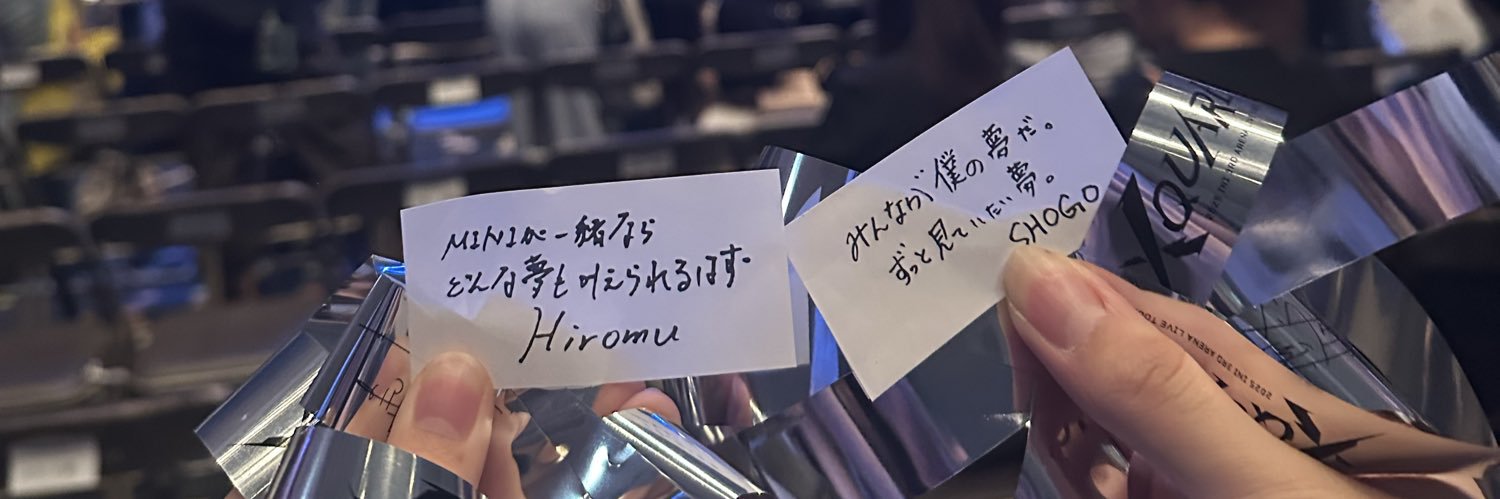 MINIが一緒なら
どんな夢も叶えられるはず。
Hiromu
みんなが僕の夢だ。
ずっと見ていたい夢。
SHOGO
2025 INI 3RD ARENA
2025 INI 3RD ARENA LIVE TOUR